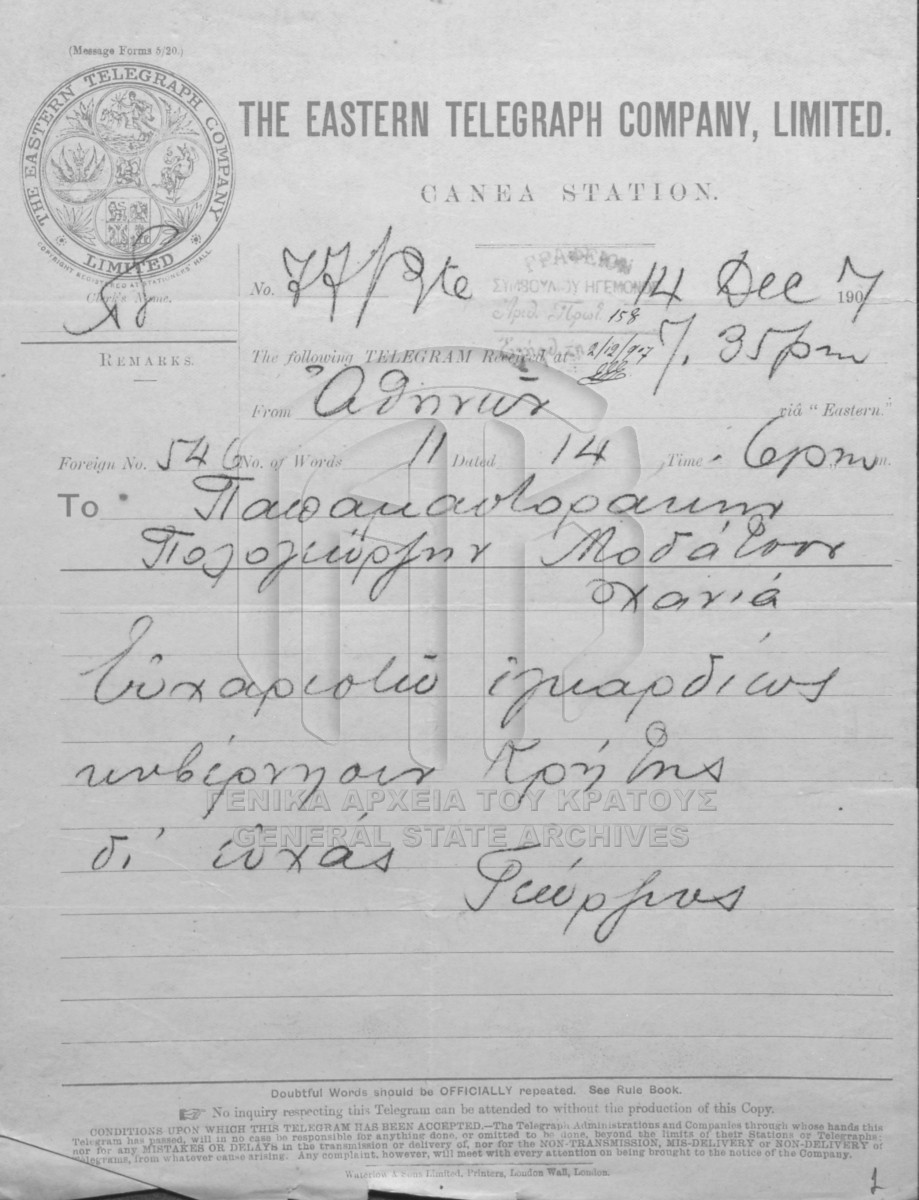 (Message Forms 5/20.)
THE EASTERN TELEGRAPH COMPANY
LIMITED
COPYRIGHT REGISTERED AT STATIONERS' HALL
THE EASTERN TELEGRAPH COMPANY, LIMITED.
CANEA STATION.
Clerk's Name.
No. 77/ 14 Dec 1907
ΣΥΜΒΟΥΛΟΥ ΗΓΕΜΟΝΟΣ
Αριθ. Πρωτ. 158
2/12/907
REMARKS.
The following TELEGRAM Received at 7.35 pm
From Ἀθηνῶν viâ "Eastern."
Foreign No. 546 No. of Words 11 Dated 14 Time 6 pm m.
To Παπαμαστοράκην
Πολογιώργην Μοδάτσον
Χανιά
Εὐχαριστῶ ἐγκαρδίως
κυβέρνησιν Κρήτης
δι' εὐχάς
Γεώργιος
ΓΕΝΙΚΑ ΑΡΧΕΙΑ ΤΟΥ ΚΡΑΤΟΥΣ
GENERAL STATE ARCHIVES
Doubtful Words should be OFFICIALLY repeated. See Rule Book.
No inquiry respecting this Telegram can be attended to without the production of this Copy.
CONDITIONS UPON WHICH THIS TELEGRAM HAS BEEN ACCEPTED.—The Telegraph Administrations and Companies through whose hands this
Telegram has passed, will in no case be responsible for anything done, or omitted to be done, beyond the limits of their Stations or Telegraphs;
nor for any MISTAKES OR DELAYS in the transmission or delivery of, nor for the NON-TRANSMISSION, MIS-DELIVERY or NON-DELIVERY of
Telegrams, from whatever cause arising. Any complaint, however, will meet with every attention on being brought to the notice of the Company.
Waterlow & Sons Limited, Printers, London Wall, London.
1